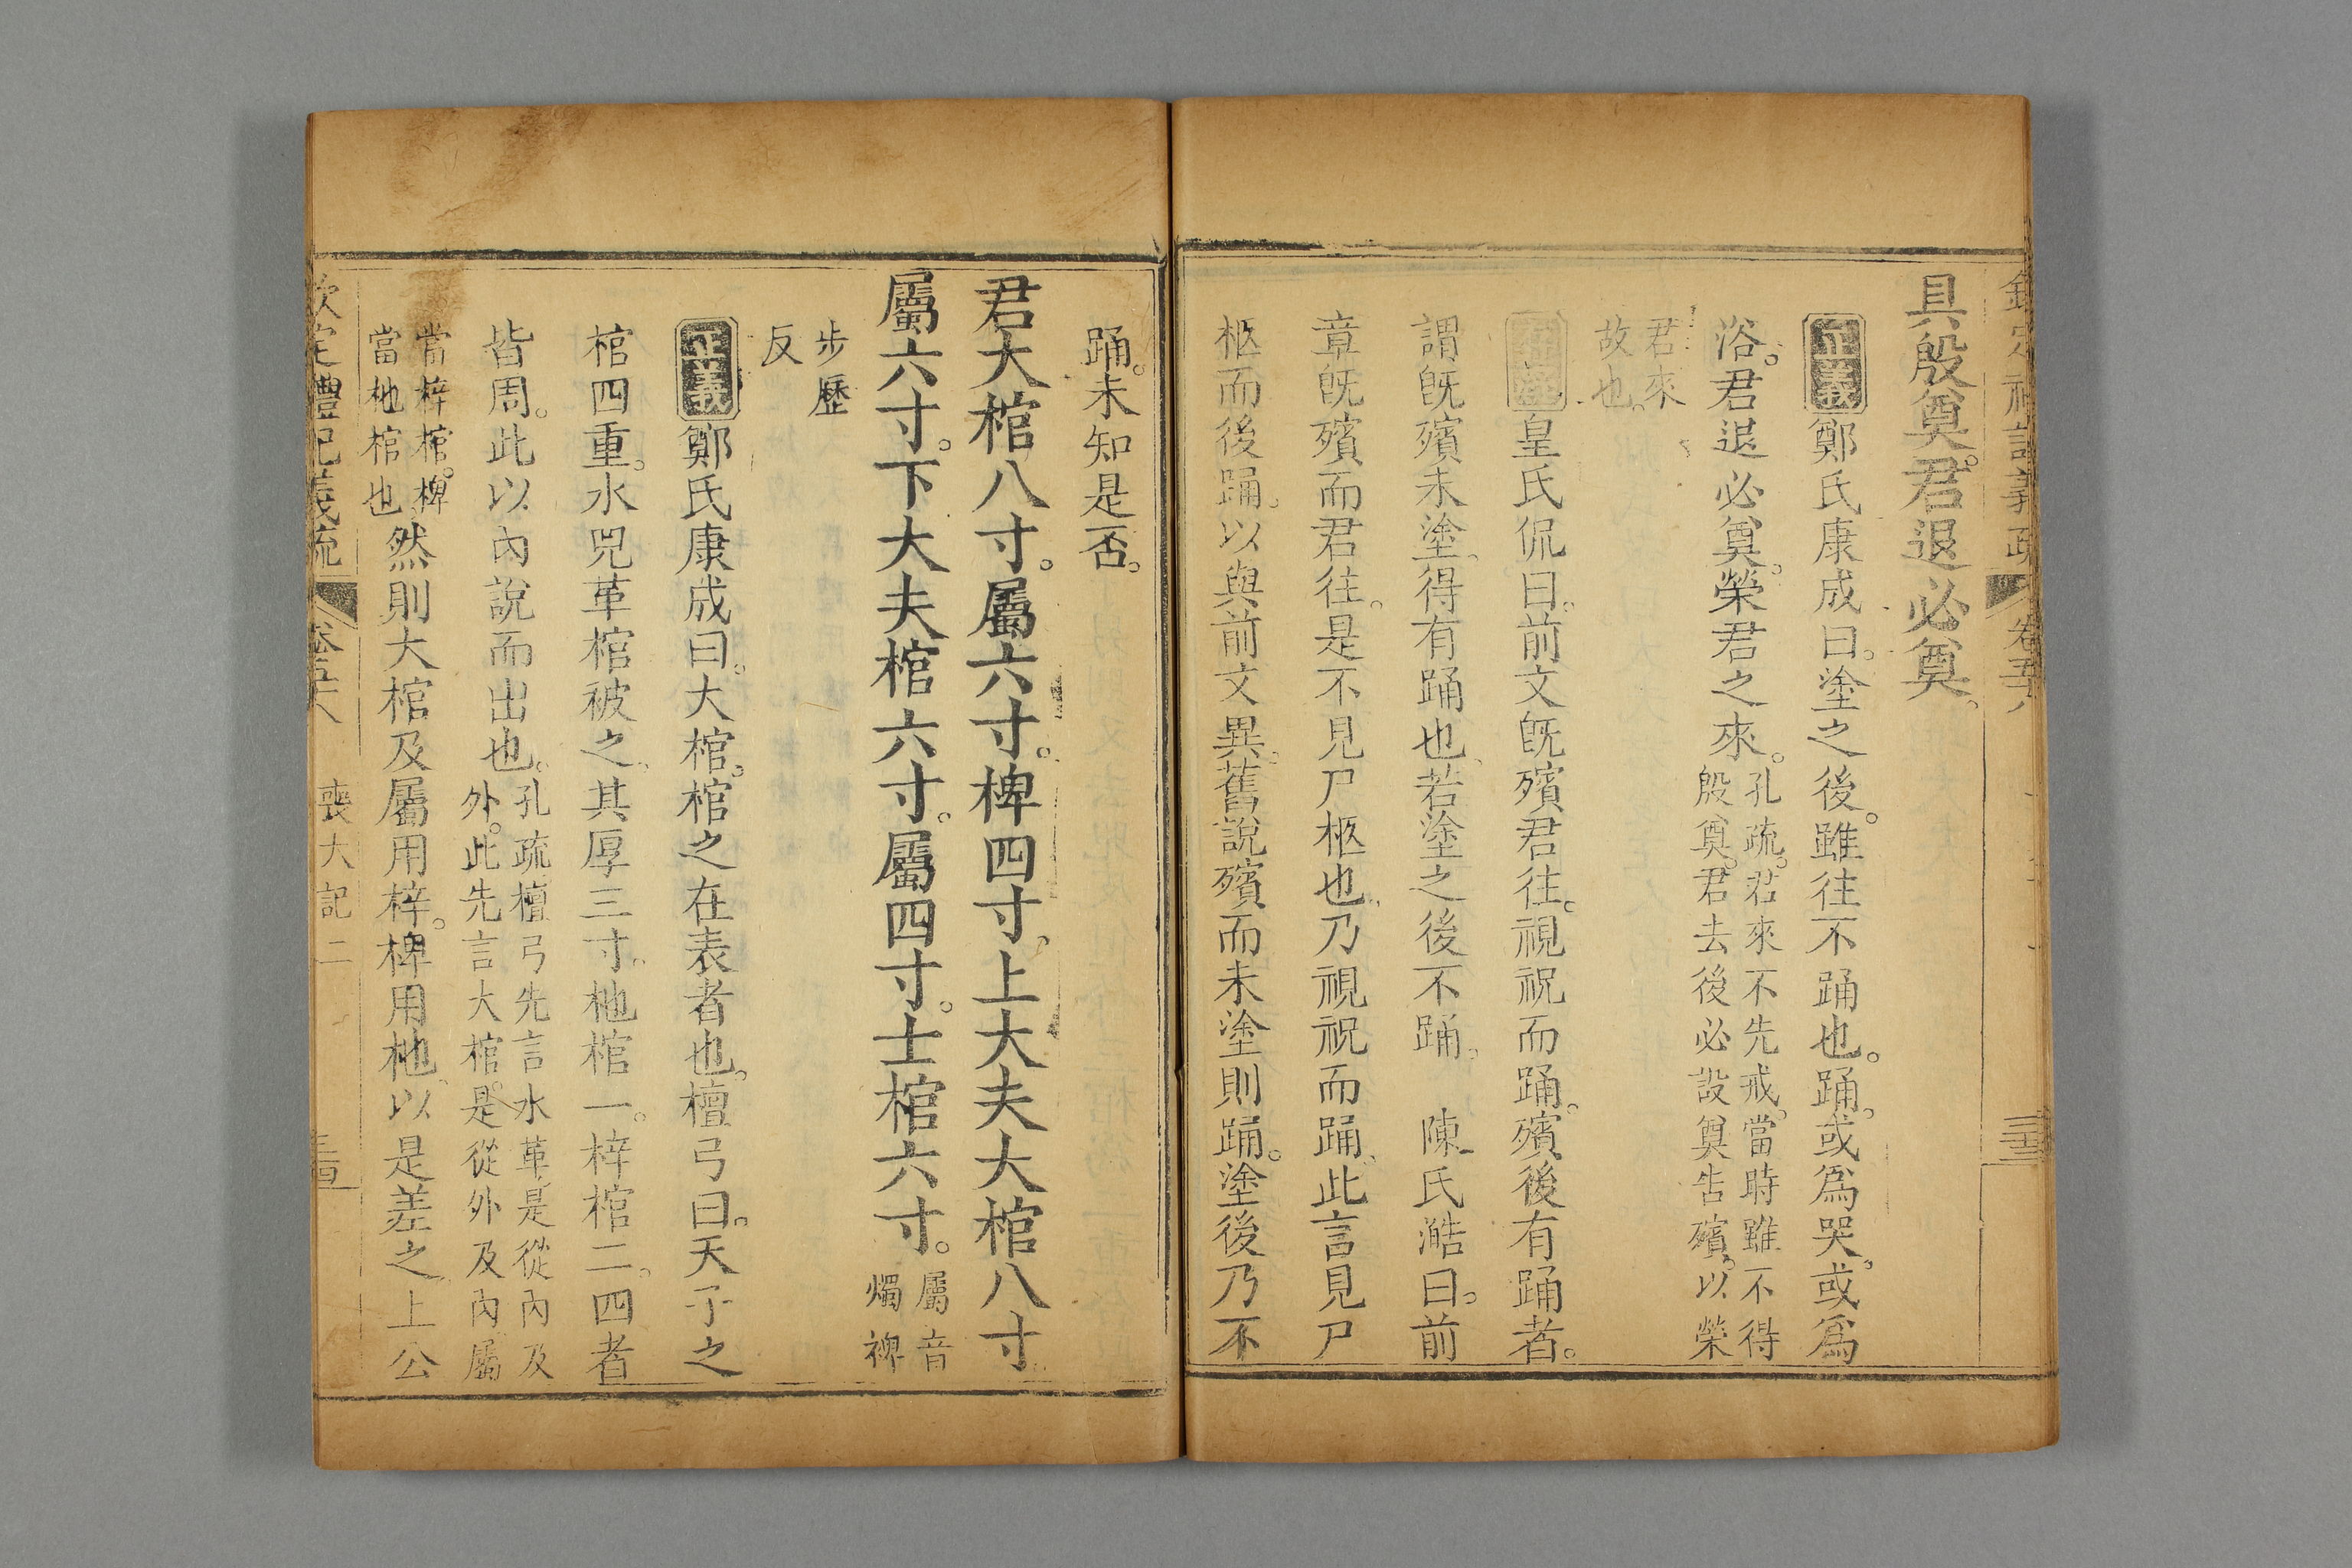 具殷奠君退必奠
正義鄭氏康成曰塗之後雖往不踊也踊或爲哭或爲
浴君退必奠榮君之來孔疏君來不先戒當時雖不得
殷奠君去後必設奠告殯以榮
君來
故也
皇氏侃曰前文旣殯君往視祝而踊殯後有踊者
謂旣殯未塗得有踊也若塗之後不踊　陳氏澔曰前
章旣殯而君往是不見尸柩也乃視祝而踊此言見尸
柩而後踊以與前文異舊說殯而未塗則踊塗後乃不
踊未知是否
君大棺八寸屬六寸椑四寸上大夫大棺八寸
屬六寸下大夫棺六寸屬四寸士棺六寸屬音
燭椑
步歷
反
正義鄭氏康成曰大棺棺之在表者也檀弓曰天子之
棺四重水兕革棺被之其厚三寸杝棺一梓棺二四者
皆周此以內說而出也孔疏檀弓先言水革是從內及
外此先言大棺是從外及內屬
當梓棺椑
當杝棺也然則大棺及屬用梓椑用杝以是差之上公
欽定禮記義疏　卷五十八　喪大記二